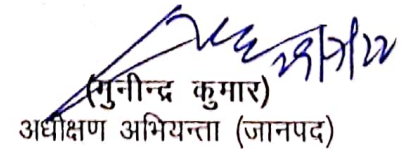 29/7/22
(गुनीन्द्र कुमार)
अधीक्षण अभियन्ता (जानपद)